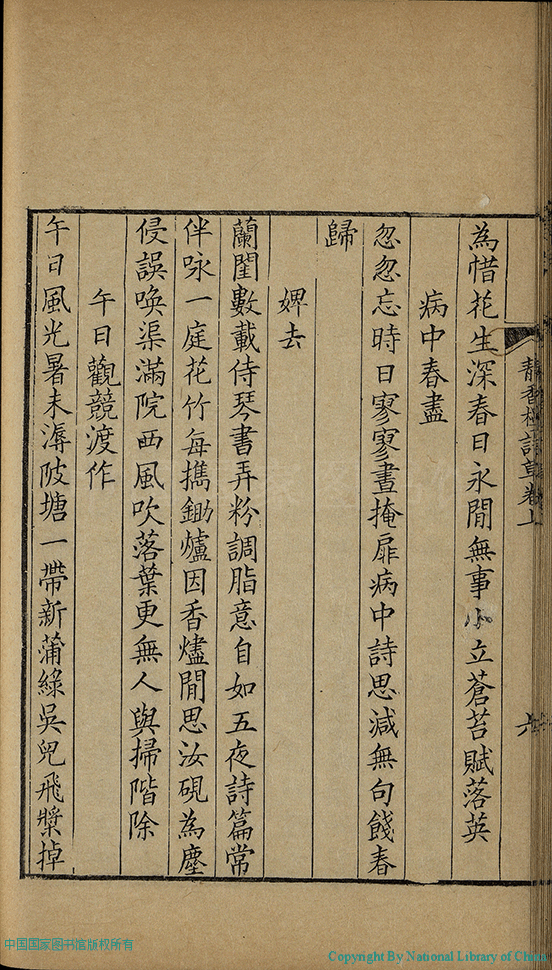 為惜花生深春日永閒無事小立蒼苔賦落英
病中春盡
忽忽忘時日寥寥晝掩扉病中詩思減無句餞春
歸
婢去
蘭閨數載侍琴書弄粉調脂意自如五夜詩篇常
伴咏一庭花竹每擕鋤爐因香燼閒思汝硯為塵
侵誤喚渠滿院西風吹落葉更無人與掃階除
午日觀競渡作
午日風光暑未溽陂塘一帶新蒲綠吳兒飛槳掉
香 詩草卷上
六
中国国家图书馆版权所有
Copyright By National Library of China